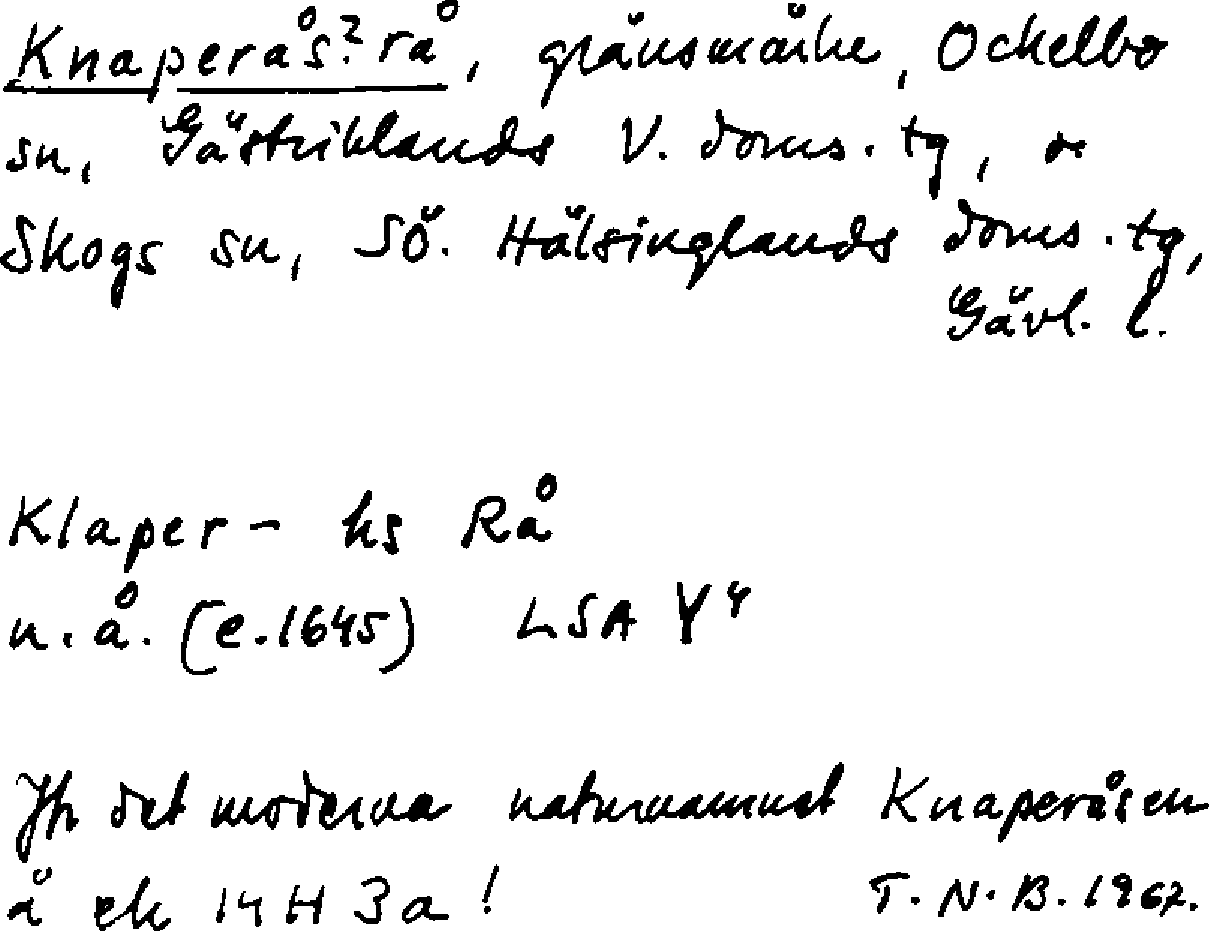 Knaperås?rå, gränsmärke, Ockelbo
sn, Gästriklands V. doms. tg, o
Skogs sn, Sö. Hälsinglands doms. tg,
Gävl. l.
Klaper- hs Rå
n. å. (e. 1645) LSA Y4
Jfr det moderna naturnamnet Knaperåsen
å ek 14H 3a!
T. N. B. 1967.